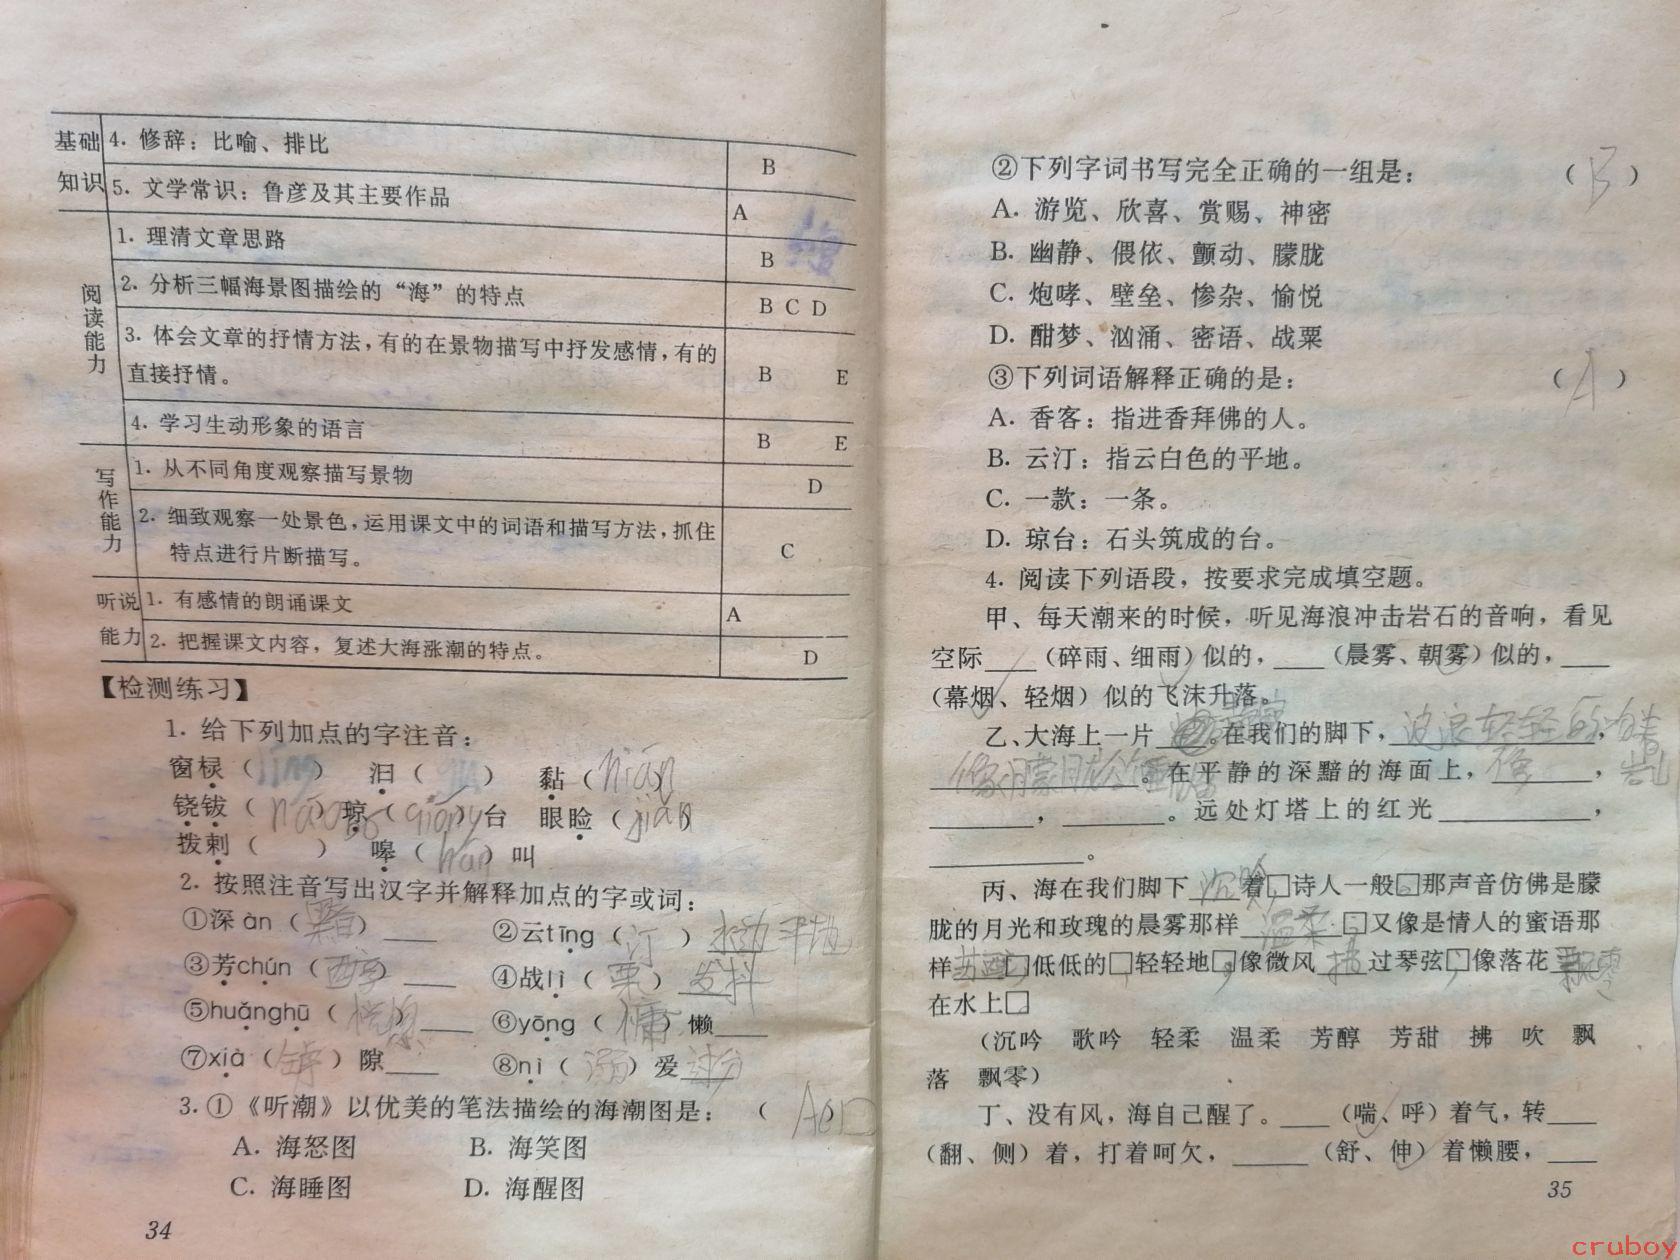 基础知识
4. 修辞：比喻、排比 B
5. 文学常识：鲁彦及其主要作品 A
阅读能力
1. 理清文章思路 B
2. 分析三幅海景图描绘的“海”的特点 B C D
3. 体会文章的抒情方法，有的在景物描写中抒发感情，有的
直接抒情。 B E
4. 学习生动形象的语言 B E
写作能力
1. 从不同角度观察描写景物 D
2. 细致观察一处景色，运用课文中的词语和描写方法，抓住
特点进行片断描写。 C
听说能力
1. 有感情的朗诵课文 A
2. 把握课文内容，复述大海涨潮的特点。 D
【检测练习】
1. 给下列加点的字注音：
窗棂（ līng ） 汩（ ） 黏（ nián ）
铙钹（ ） 琼（ qióng ）台 眼睑（ jiǎn ）
拨刺（ ） 嗥（ ）叫
2. 按照注音写出汉字并解释加点的字或词：
①深àn（ 黯 ）____ ②云tīng（ 汀 ）水边平地
③芳chún（ 醇 ）____ ④战lì（ 栗 ）发抖
⑤huǎnghū（ 恍惚 ）____ ⑥yōng（ 慵 ）懒____
⑦xià（ 罅 ）隙____ ⑧nì（ 溺 ）爱过分
3. ①《听潮》以优美的笔法描绘的海潮图是：（ ACD ）
A. 海怒图 B. 海笑图
C. 海睡图 D. 海醒图
34
②下列字词书写完全正确的一组是：（ B ）
A. 游览、欣喜、赏赐、神密
B. 幽静、偎依、颤动、朦胧
C. 炮哮、壁垒、惨杂、愉悦
D. 酣梦、汹涌、密语、战粟
③下列词语解释正确的是：（ A ）
A. 香客：指进香拜佛的人。
B. 云汀：指云白色的平地。
C. 一款：一条。
D. 琼台：石头筑成的台。
4. 阅读下列语段，按要求完成填空题。
甲、每天潮来的时候，听见海浪冲击岩石的音响，看见
空际____（碎雨、细雨）似的，____（晨雾、朝雾）似的，____
（幕烟、轻烟）似的飞沫升落。
乙、大海上一片____。在我们的脚下，波浪轻轻
像朦胧。在平静的深黯的海面上，像____，
____，____。远处灯塔上的红光____，
____。
丙、海在我们脚下沉吟着□诗人一般□那声音仿佛是朦
胧的月光和玫瑰的晨雾那样温柔□又像是情人的蜜语那
样芳醇□低低的□轻轻地□像微风拂过琴弦□像落花飘零
在水上□
（沉吟 歌吟 轻柔 温柔 芳醇 芳甜 拂 吹 飘
落 飘零）
丁、没有风，海自己醒了。____（喘、呼）着气，转____
（翻、侧）着，打着呵欠，____（舒、伸）着懒腰，____
35
cruboy